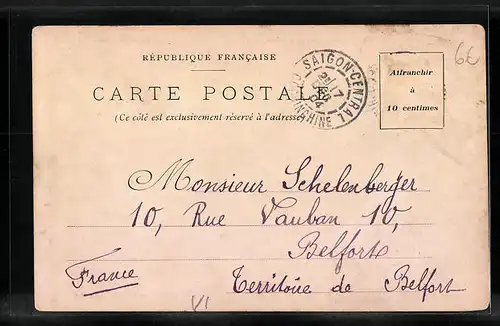 RÉPUBLIQUE FRANÇAISE
CARTE POSTALE
(Ce côté est exclusivement réservé à l'adresse)
SAIGON-CENTRAL
COCHINCHINE
Affranchir
à
10 centimes
6€
Monsieur Schelenberger
10, Rue Vauban 10,
Belfort
France
Territoire de Belfort
VI